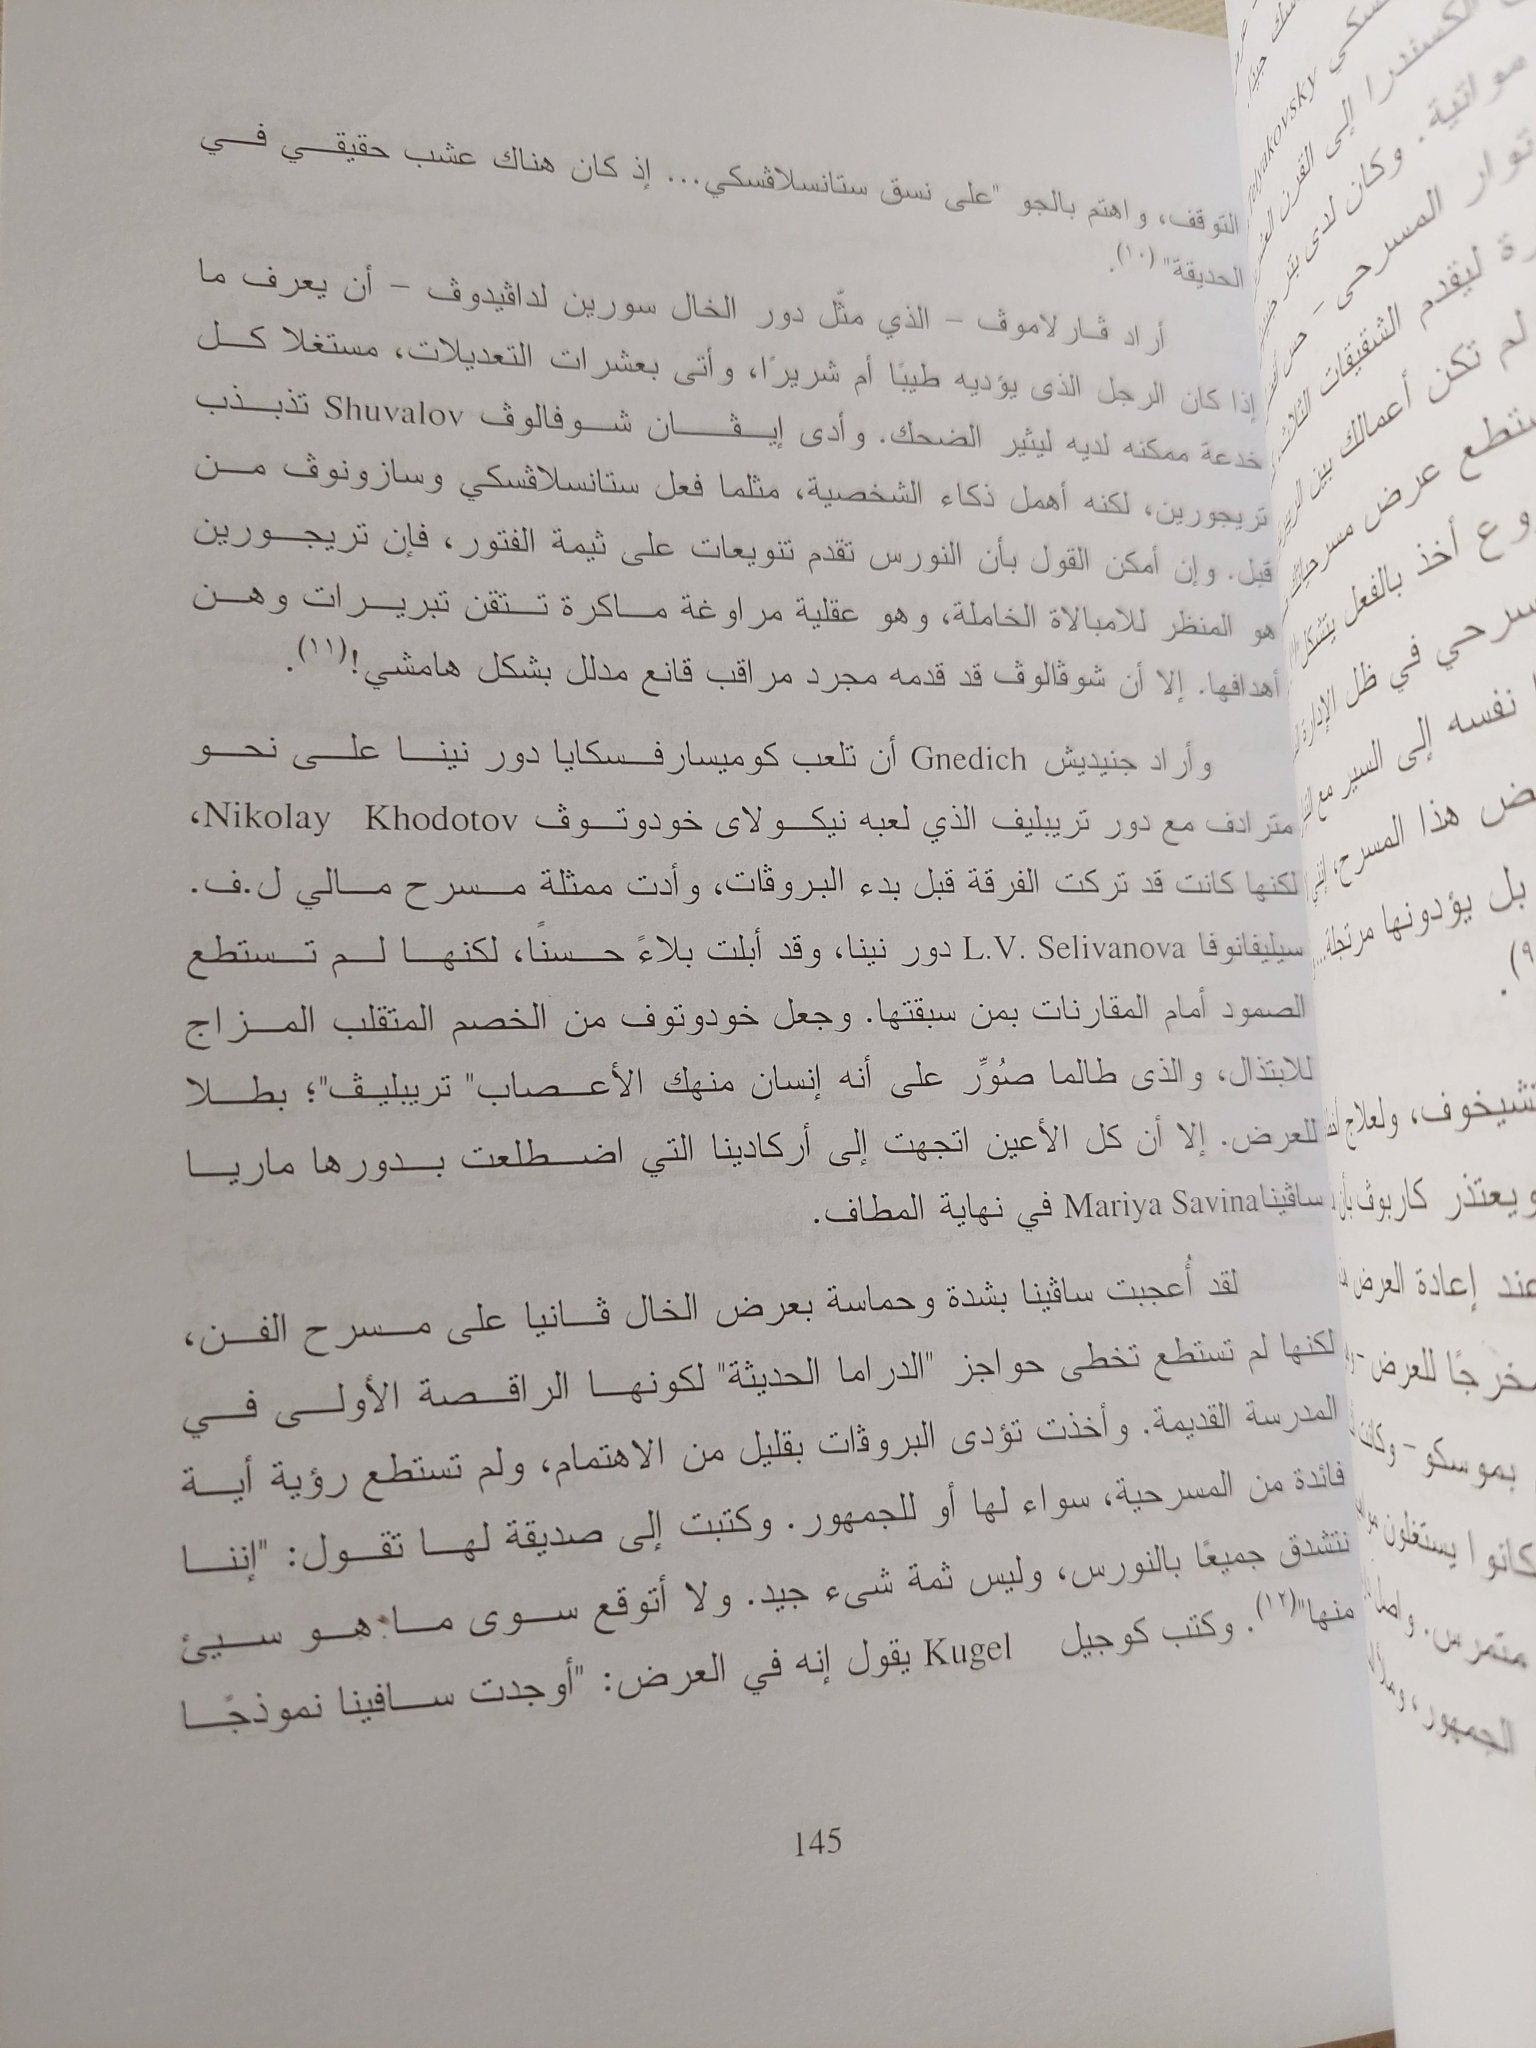 التوقف، واهتم بالجو "على نسق ستانسلاڤسكي... إذ كان هناك عشب حقيقي في
الحديقة"(١٠).
أراد ڤارلاموڤ – الذي مثّل دور الخال سورين لداڤيدوڤ – أن يعرف ما
إذا كان الرجل الذى يؤديه طيبًا أم شريرًا، وأتى بعشرات التعديلات، مستغلا كل
خدعة ممكنه لديه ليثير الضحك. وأدى إيڤان شوفالوڤ Shuvalov تذبذب
تريجورين، لكنه أهمل ذكاء الشخصية، مثلما فعل ستانسلاڤسكي وسازونوڤ من
قبل. وإن أمكن القول بأن النورس تقدم تنويعات على ثيمة الفتور، فإن تريجورين
هو المنظر للامبالاة الخاملة، وهو عقلية مراوغة ماكرة تتقن تبريرات وهن
أهدافها. إلا أن شوڤالوڤ قد قدمه مجرد مراقب قانع مدلل بشكل هامشي!(١١).
وأراد جنيديش Gnedich أن تلعب كوميسارفسكايا دور نينا على نحو
مترادف مع دور تريبليف الذي لعبه نيكولاى خودوتوڤ Nikolay Khodotov،
لكنها كانت قد تركت الفرقة قبل بدء البروڤات، وأدت ممثلة مسرح مالي ل.ف.
سيليفانوفا L.V. Selivanova دور نينا، وقد أبلت بلاءً حسنًا، لكنها لم تستطع
الصمود أمام المقارنات بمن سبقتها. وجعل خودوتوف من الخصم المتقلب المزاج
للابتذال، والذى طالما صُوِّر على أنه إنسان منهك الأعصاب" تريبليڤ"؛ بطلا
للعرض. إلا أن كل الأعين اتجهت إلى أركادينا التي اضطلعت بدورها ماريا
ساڤينا Mariya Savina في نهاية المطاف.
لقد أُعجبت ساڤينا بشدة وحماسة بعرض الخال ڤانيا على مسرح الفن،
لكنها لم تستطع تخطى حواجز "الدراما الحديثة" لكونها الراقصة الأولى في
المدرسة القديمة. وأخذت تؤدى البروڤات بقليل من الاهتمام، ولم تستطع رؤية أية
فائدة من المسرحية، سواء لها أو للجمهور. وكتبت إلى صديقة لها تقول: "إننا
نتشدق جميعًا بالنورس، وليس ثمة شىء جيد. ولا أتوقع سوى ما هو سيئ
منها"(١٢). وكتب كوجيل Kugel يقول إنه في العرض: "أوجدت سافينا نموذجًا
145